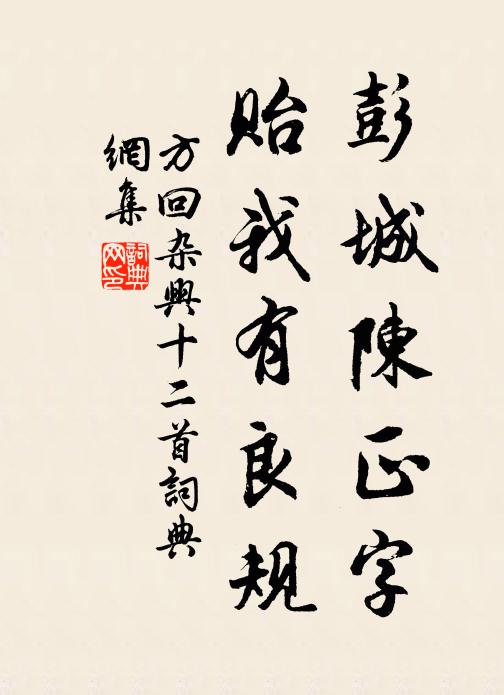 彭城陳正字
貽我有良規
方回杂興十二首詞典
網集
詞典
网印